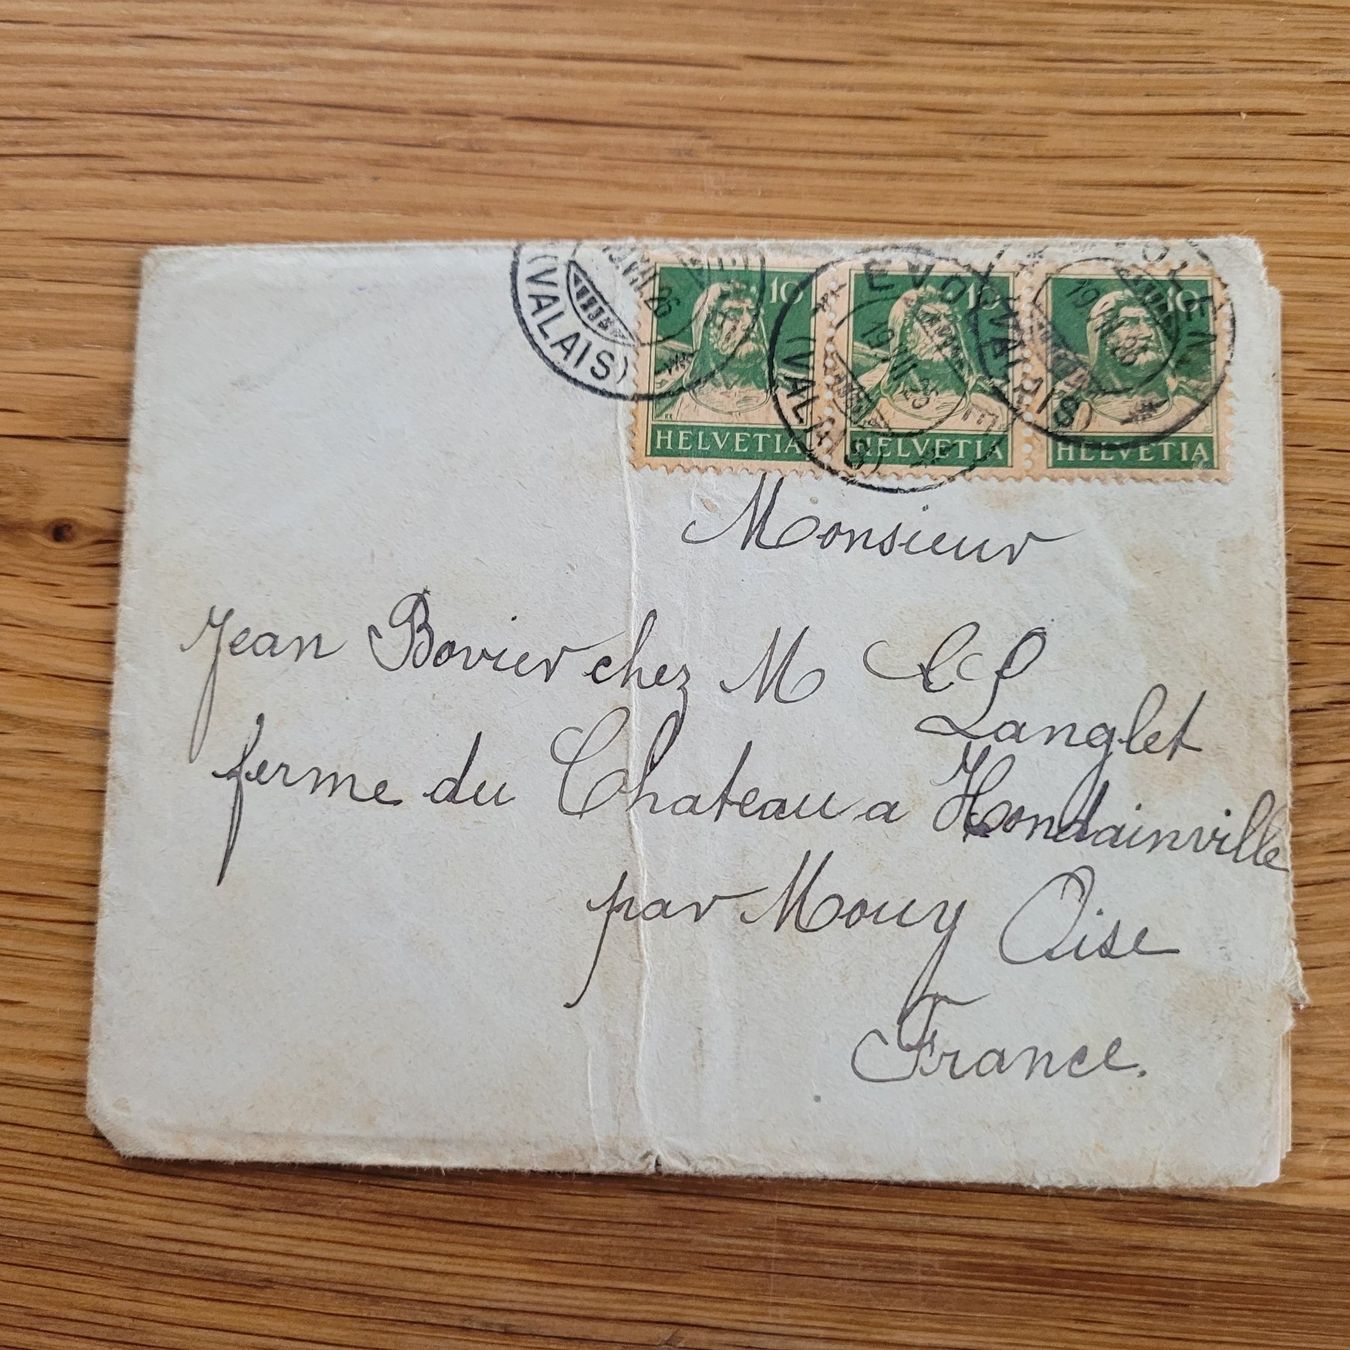 10 10 10
HELVETIA HELVETIA HELVETIA
EVOLÈNE
(VALAIS)
(VALAIS)
(VALAIS)
Monsieur
Jean Bovier chez M
Langlet
ferme du Chateau a Hondainville
par Mouy Oise
France.